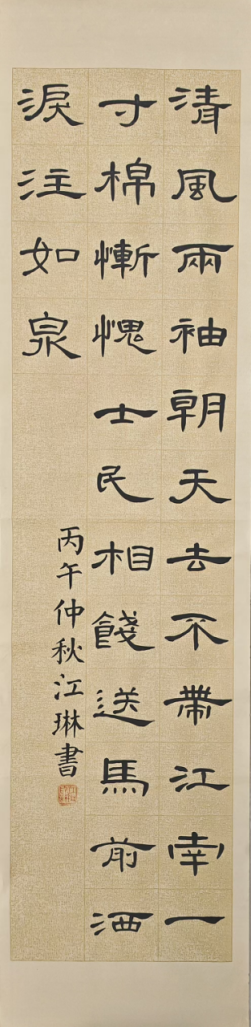 清風兩袖朝天去不帶江南一
寸棉慚愧士民相餞送馬前洒
淚注如泉
丙午仲秋江琳書